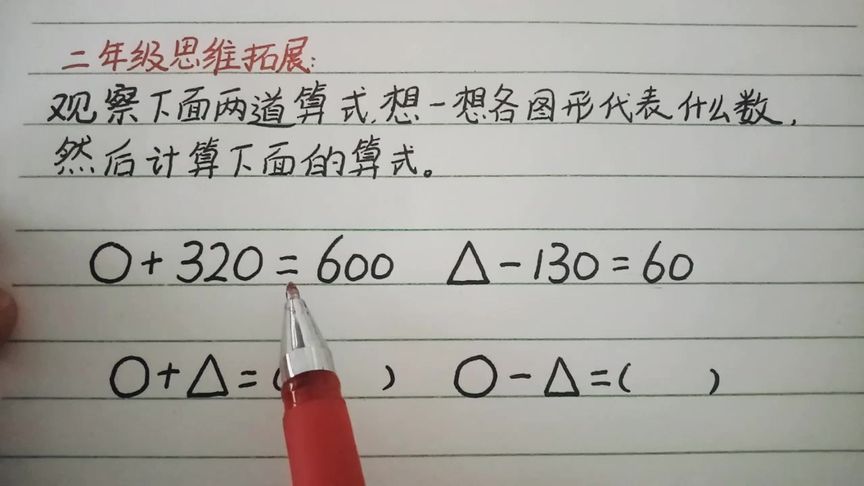 二年级思维拓展:
观察下面两道算式,想一想各图形代表什么数,
然后计算下面的算式。
○+320=600 △-130=60
○+△=( ) ○-△=( )